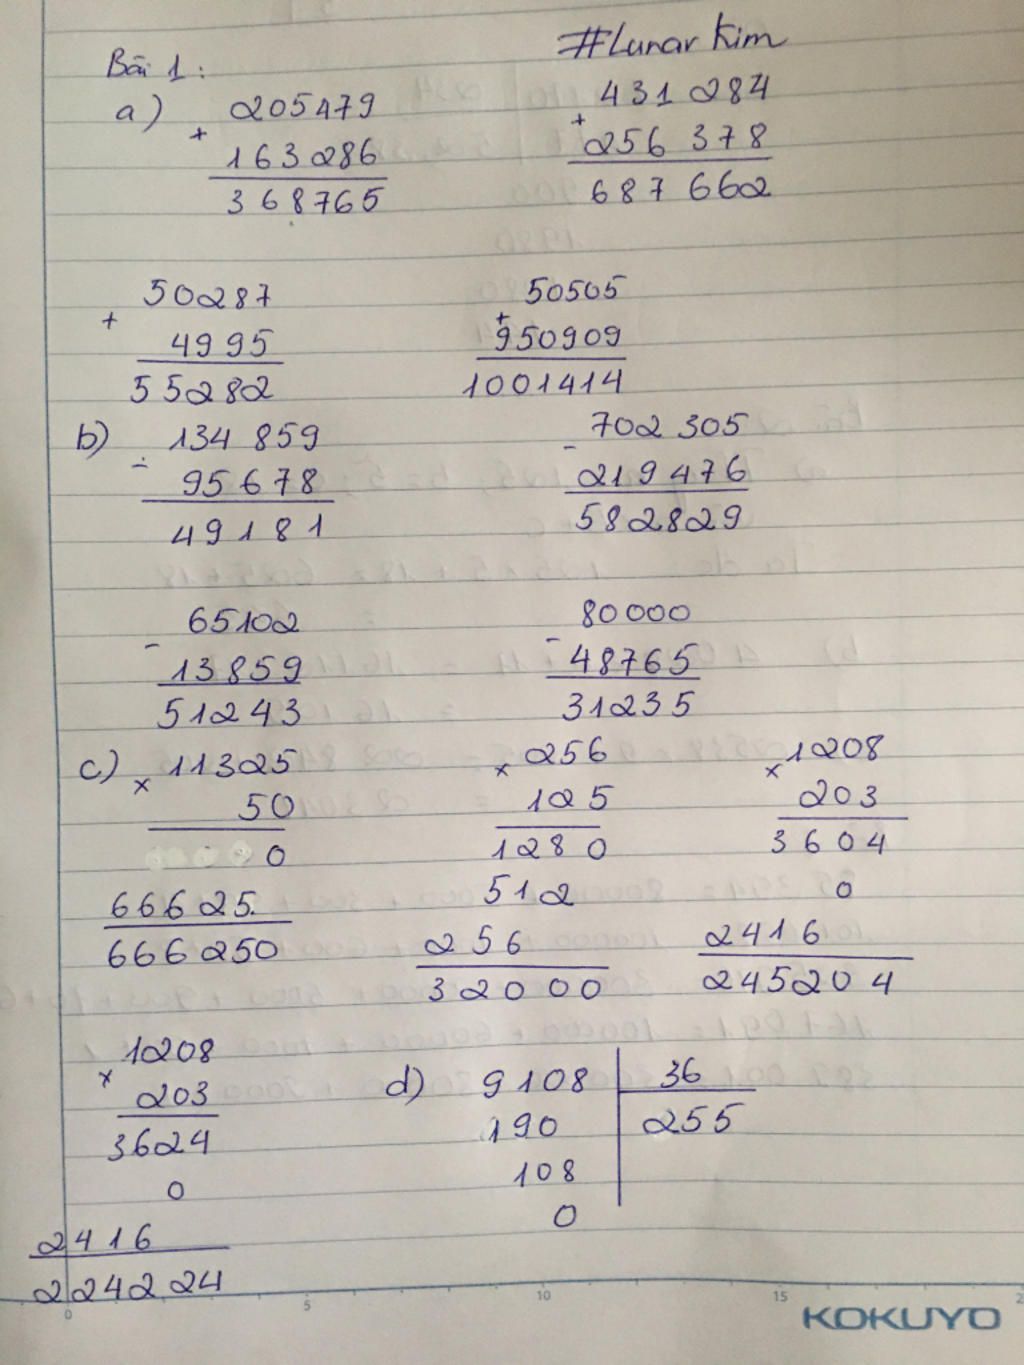 #Lunar Kim
Bài 1:
a) 205479
+
163286
368765
431 284
+
256 378
687 662
50287
+
4995
55282
50505
+
950909
1001414
b) 134 859
-
95678
49181
702 305
-
219476
582829
65102
-
13859
51243
80000
-
48765
31235
c) 11325
x
50
0
66625.
666250
256
x
125
1280
512
256
32000
1208
x
203
3604
0
2416
245204
1208
x
203
3624
0
2416
224224
d) 9108 36
190 255
108
0
0 5 10 15
KOKUYO